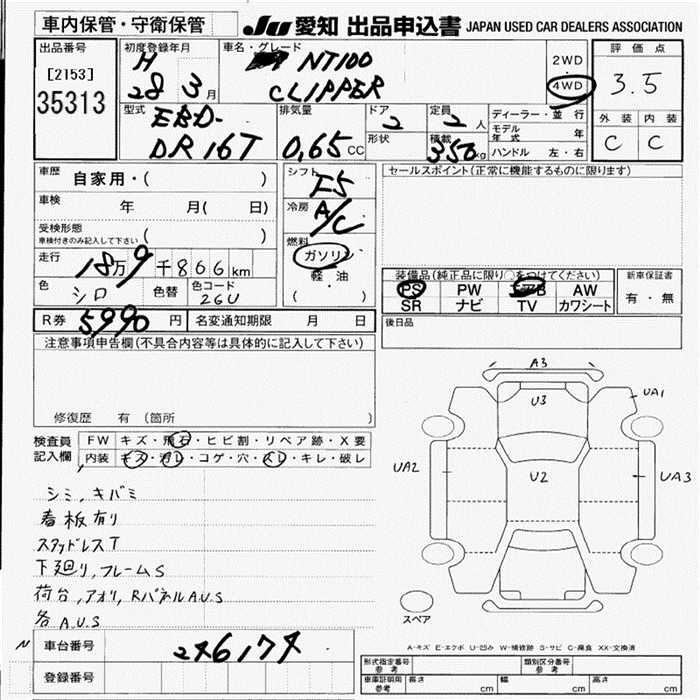 車内保管・守衛保管
JU 愛知 出品申込書 JAPAN USED CAR DEALERS ASSOCIATION
出品番号
[2153]
35313
初度登録年月
H
28 3月
車名・グレード
NT100
CLIPPER
2WD
・
4WD
評価点
3.5
外装 内装
C C
型式
EBD-
DR16T
排気量
0.65 CC
ドア
2
形状
定員
2人
積載
350kg
ディーラー・並行
モデル年式 年
ハンドル 左・右
車歴
自家用・( )
車検
年 月( 日)
受検形態
車検付きのみ記入して下さい ( )
走行
18万9千866km
色
シロ
色替
色コード
26U
シフト
F5
冷房
A/C
燃料
ガソリン
軽・油
( )
R券 5990円 名変通知期限 月 日
セールスポイント(正常に機能するものに限ります)
装備品(純正品に限り○をつけてください)
PS PW AW
SR ナビ TV カワシート
新車保証書
有・無
後日品
注意事項申告欄(不具合内容等は具体的に記入して下さい)
修復歴 有(箇所 )
検査員記入欄
FW キズ・飛石・ヒビ割・リペア跡・X要
内装 キズ・汚レ・コゲ・穴・スレ・キレ・破レ
シミ,キバミ
看板有り
スタッドレスT
下廻り,フレームS
荷台,アオリ,RパネルA.U.S
各A.U.S
A3
U3
UA1
UA2
U2
UA3
スペア
A-キズ E-エクボ U-凹み W-補修跡 S-サビ C-腐食 XX-交換済
N
車台番号 246174
登録番号
形式指定番号 参考
類別区分番号 参考
車庫証明用 参考
長さ cm
幅 cm
高さ cm